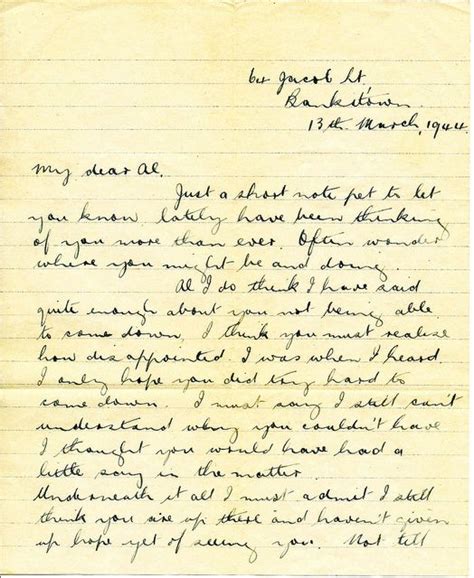 64 Jacob St.
Bankstown.
13th March, 1944
My dear Al.
Just a short note pet to let
you know lately have been thinking
of you more than ever. Often wonder
where you might be and doing.
Al I do think I have said
quite enough about you not being able
to come down, I think you must realise
how disappointed I was when I heard.
I only hope you did try hard to
come down. I must say I still can't
understand why you couldn't have
I thought you would have had a
little say in the matter.
Underneath it all I must admit I still
think you are up there and haven't given
up hope yet of seeing you. Not till